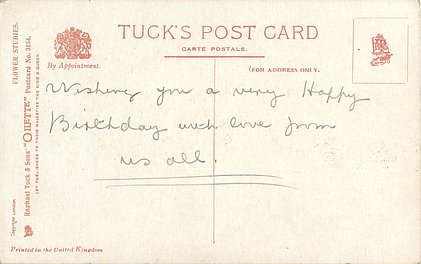 TUCK'S POST CARD
CARTE POSTALE.
By Appointment.
(FOR ADDRESS ONLY.
Wishing you a very Happy
Birthday with love from
us all.
FLOWER STUDIES.
Raphael Tuck & Sons' "OILETTE" Postcard No. 3134.
ART PUBLISHERS TO THEIR MAJESTIES THE KING & QUEEN
Copyright London
Printed in the United Kingdom